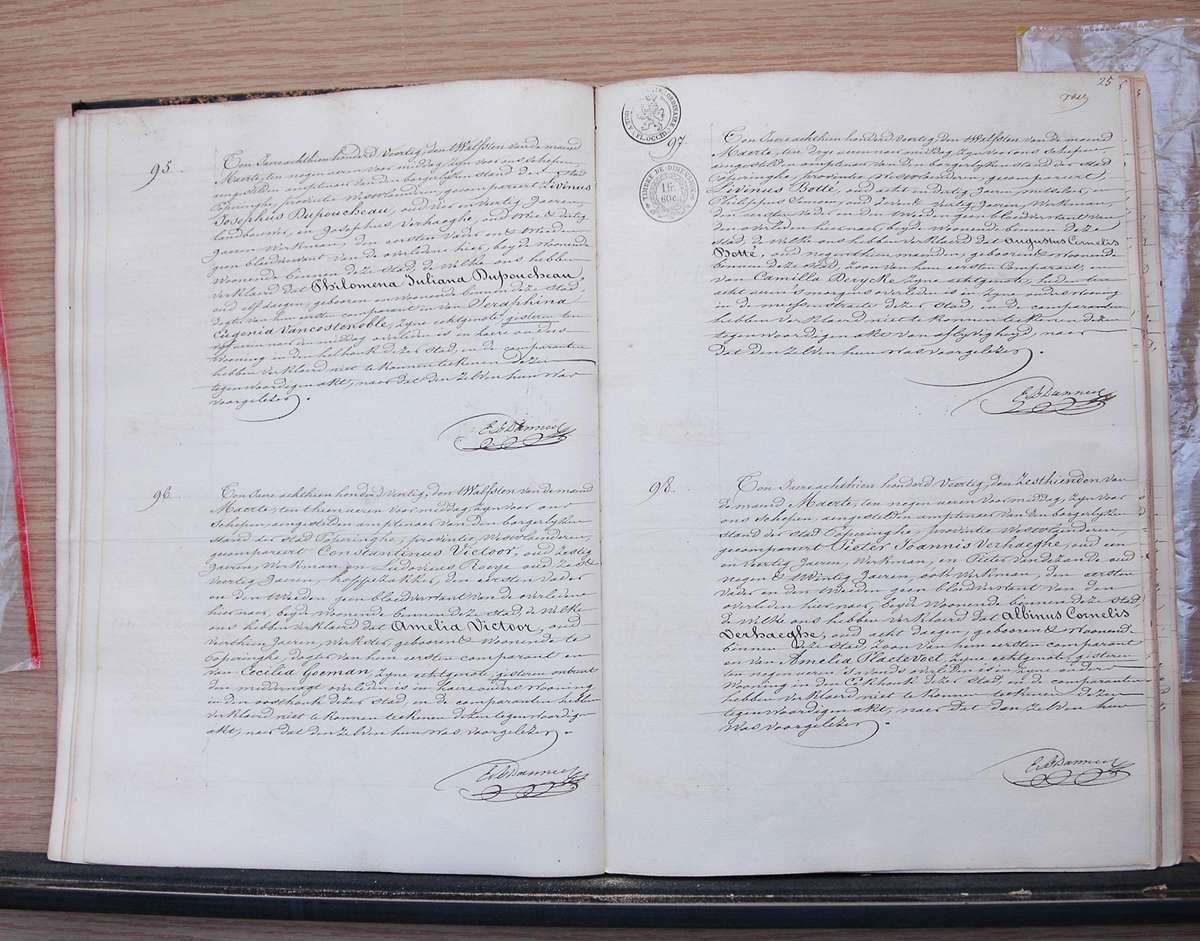 95.
Ten Jaere achthien honderd veertig, den twalfsten van de maand
Maerte, ten negen ueren voor middag, zyn voor ons Schepen,
aengestelden amptenaer van den borgerlyken stand der Stad
Poperinghe, provintie Westvlanderen, gecompareert Livinus
Josephus Dupoucheau, oud vier en veertig Jaeren,
landbouwer, en Josephus Verhaeghe, oud drie & dertig
Jaeren Werkman, den eersten Vader en & tweeden
geen bloedverwant van de overledene hier, beyde Woonende
Woonende binnen deze Stad, de Welke ons hebben
verklaerd dat Philomena Juliana Dupoucheau,
oud elf daegen, geboren en Woonende binnen deze Stad,
dogter van hem eersten comparant en van Seraphina
Eugenia Vancostenoble, zyne echtgenote, gisteren ten
ueren naer middag overleden is in haere ouders
Wooning in den helhoek dezer Stad, en de comparanten
hebben verklaerd niet te konnen teekenen dezen
tegenwoordigen akt, naer dat den zelven hun was
voorgelezen.
96.
Ten Jaere achthien honderd veertig, den twalfsten van de maand
Maerte, ten thien ueren voor middag, zyn voor ons
Schepen, aengestelden amptenaer van den borgerlyken
Stand der stad Poperinghe, provintie Westvlanderen,
gecompareert Constantinus Victoor, oud zestig
Jaeren, Werkman, en Ludovicus oud
Veertig Jaeren, den eersten Vader
en den tweeden geen bloedverwant van de overledene
hier naer, beyde Woonende binnen deze Stad de Welke
ons hebben verklaerd dat Amelia Victoor, oud
veerthien Jaeren, Werkster, geboren & Woonende te
Poperinghe, dogter van hem eersten comparant en
van Cecilia Goeman, zyne echtgenote, gisteren ontrent
den midder nagt overleden is in haere ouders Wooning
in den oosthoek dezer Stad, en de comparanten hebben
verklaerd niet te konnen teekenen dezen tegenwoordigen
akt, naer dat den zelven hun was voorgelezen.
25
97.
TIMBRE DE DIMENSION
60C.
Ten Jaere achthien honderd veertig, den twalfsten van de maand
Maerte, ten dry ueren naer middag zyn voor ons Schepen
aengestelden amptenaer van den borgerlyken stand der stad
Poperinghe, provintie Westvlanderen, gecompareert
Livinus Botte, oud acht en dertig Jaeren, en
Philippus Simoen, oud veertig Jaeren, Werkman,
den eersten Vader en den tweeden geen bloedverwant van
den overleden hier naer, beyde Woonende binnen deze
Stad, de Welke ons hebben verklaerd dat Augustus Cornelis
Botte, oud negenthien maenden, geboren & Woonende
binnen deze Stad, zoon van hem eersten comparant, en
van Camilla Derycke zyne echtgenote, heden ten
acht ueren 's morgens overleden is in zyne ouders Wooning
in de dezer Stad, en de comparanten
hebben verklaerd niet te konnen teekenen dezen
tegenwoordigen akt van aflyvigheyd, naer
dat den zelven hun was voorgelezen.
98.
Ten Jaere achthien honderd veertig, den zesthienden van
de maand Maerte, ten negen ueren voor middag, zyn voor
ons Schepen, aengestelden amptenaer van den borgerlyken
stand der stad Poperinghe, provintie Westvlanderen
gecompareert Pieter Joannis Verhaeghe, oud een
en veertig Jaeren, Werkman, en Pieter Vandekande oud
negen & twintig Jaeren, ook Werkman, den eersten
Vader en den tweeden geen bloedverwant van den
overleden hier naer, beyde Woonende binnen deze Stad
de Welke ons hebben verklaerd dat Albinus Cornelis
Verhaeghe, oud acht daegen, geboren & Woonende
binnen deze Stad, zoon van hem eersten comparant
en van Amelia Plaetevoet, zyne echtgenote, gisteren
ten negen ueren 's avonds overleden is in zyne ouders
Wooning in den Eekhoek dezer Stad, en de comparanten
hebben verklaerd niet te konnen teekenen dezen
tegenwoordigen akt, naer dat den zelven hun
was voorgelezen.